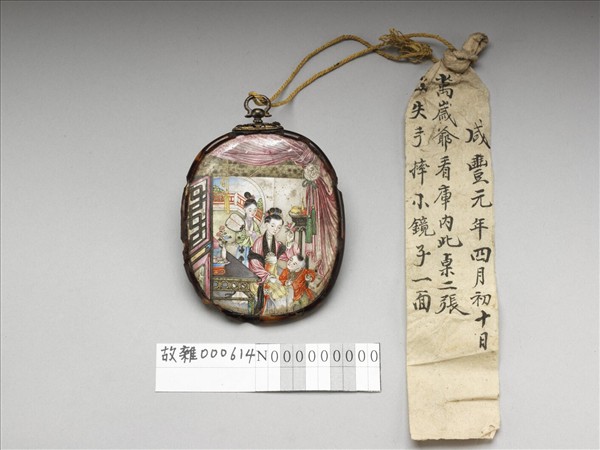 咸豐元年四月初十日
萬歲爺看庫內此桌二張
失手摔小鏡子一面
故雜000614N000000000